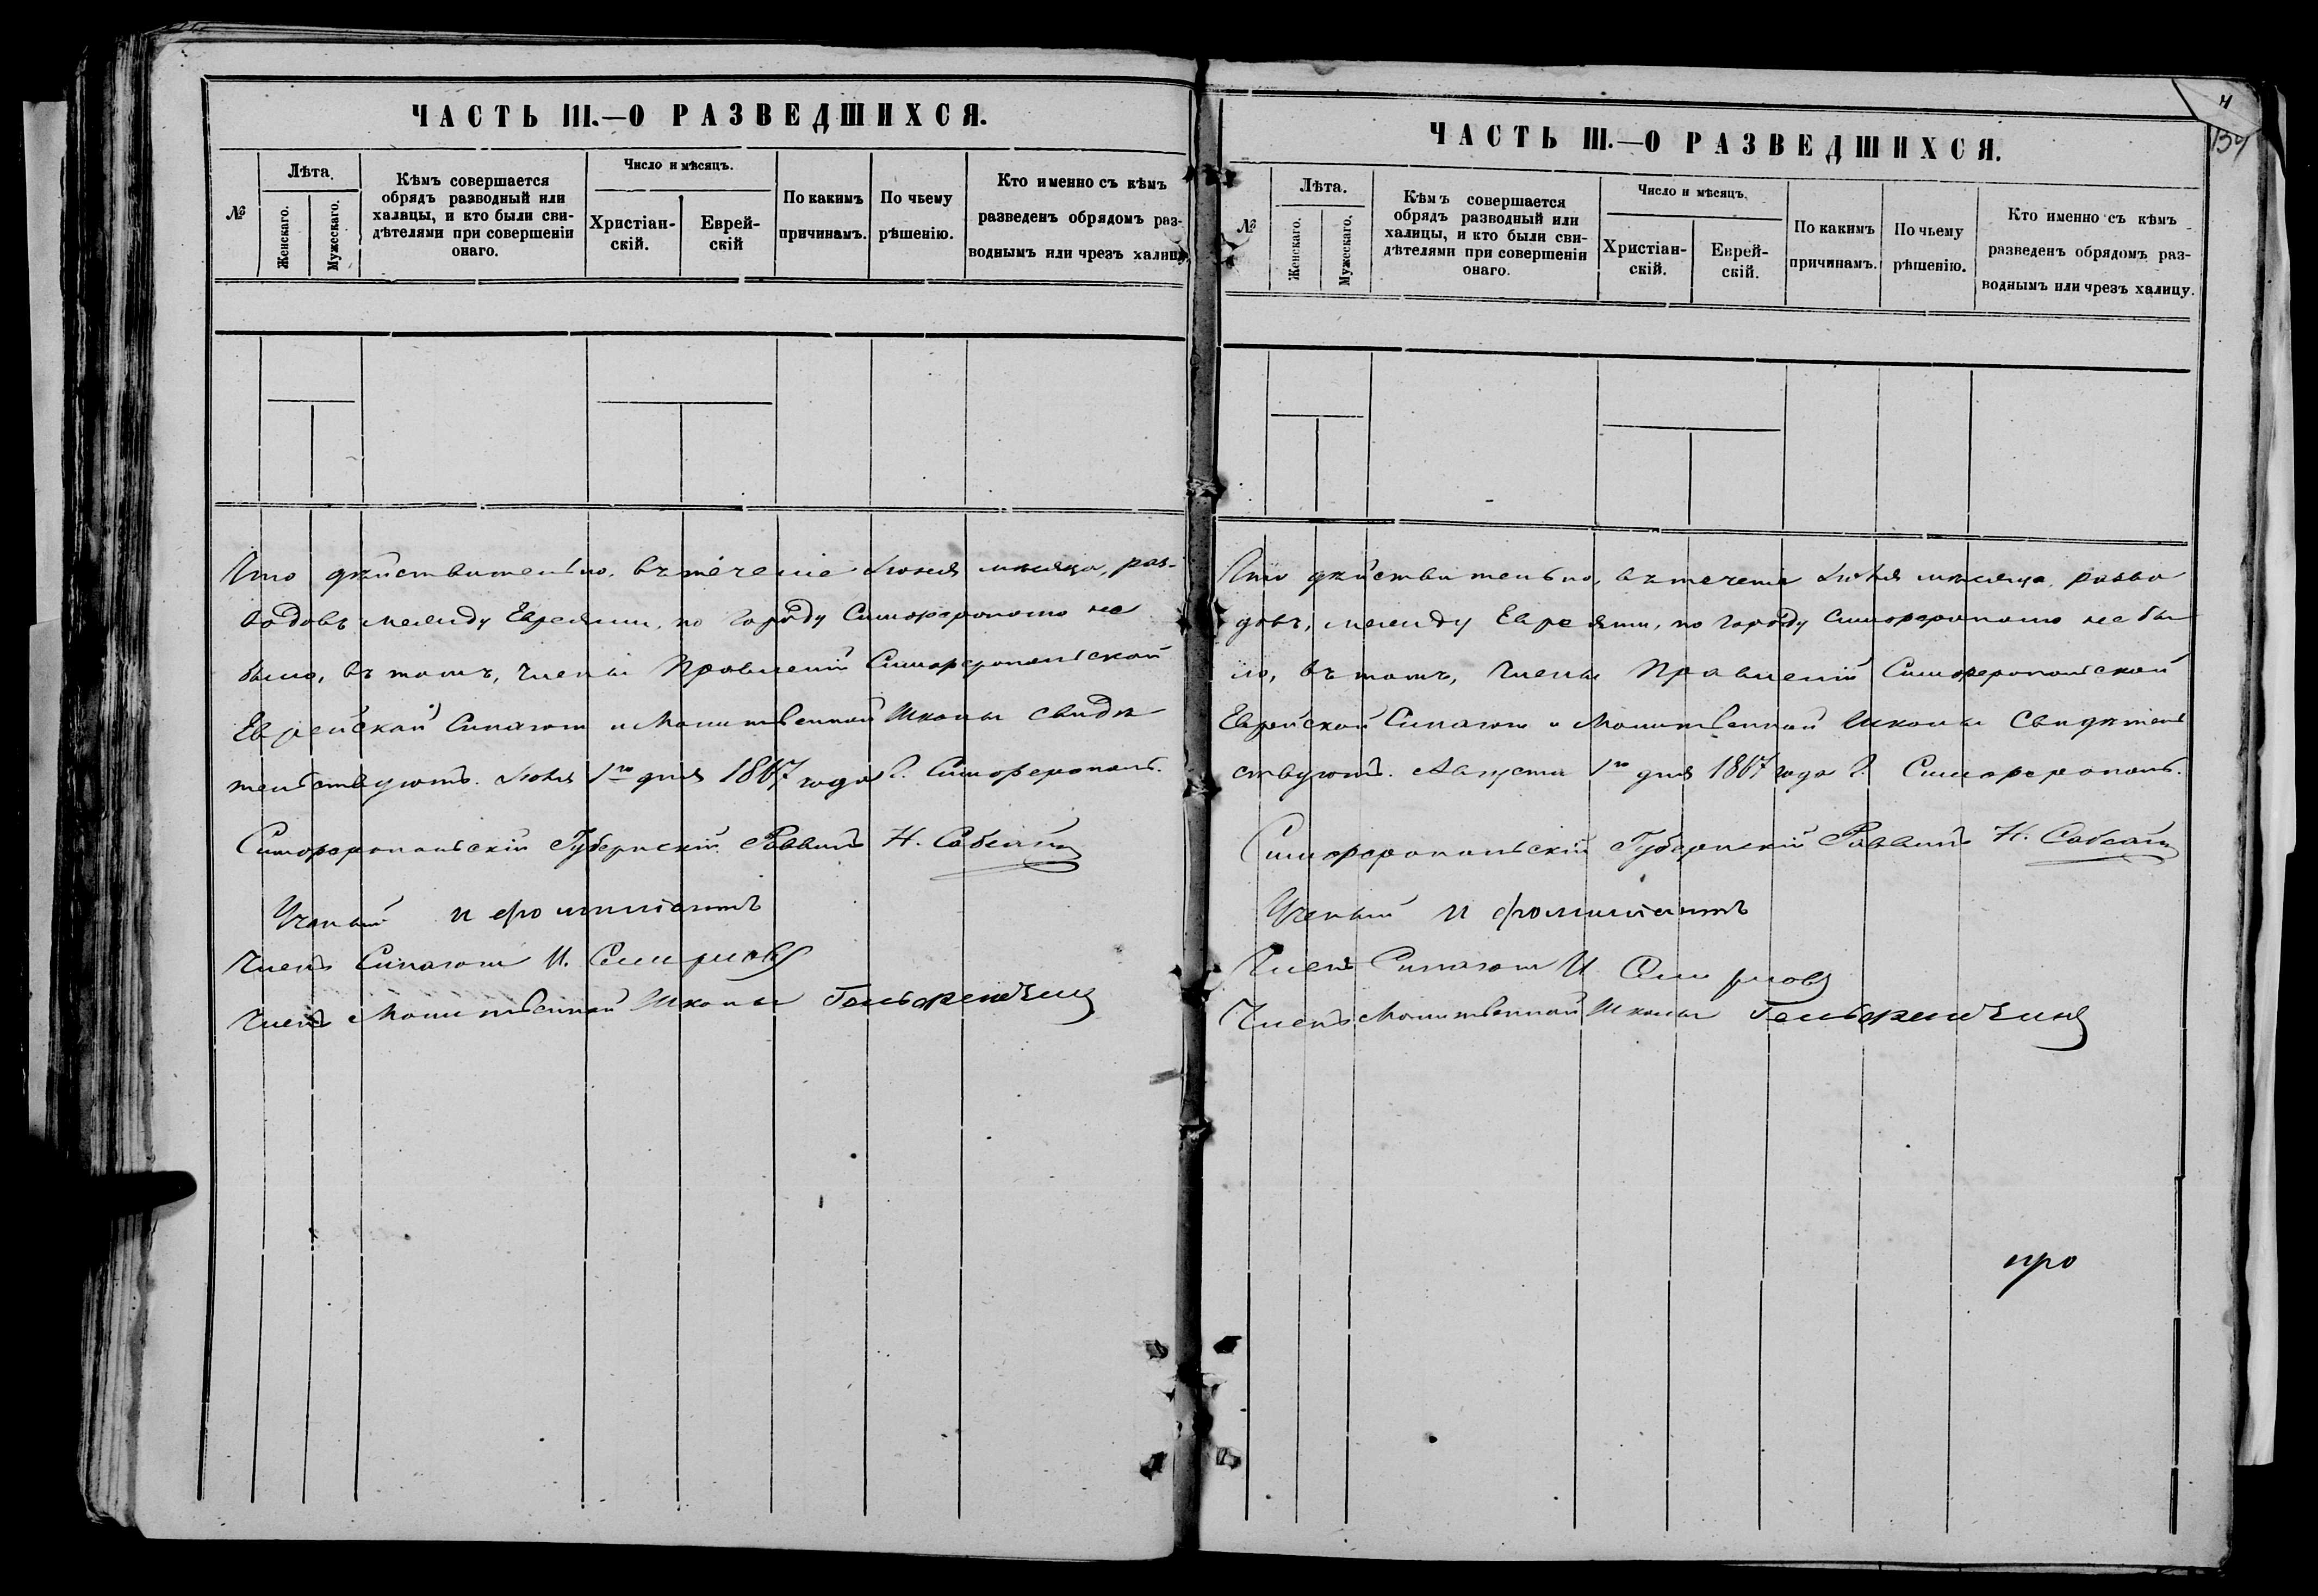 ЧАСТЬ III.—О РАЗВЕДШИХСЯ.
№
Лѣта.
Женскаго.
Мужескаго.
Кѣмъ совершается
обрядъ разводный или
халицы, и кто были сви-
дѣтелями при совершеніи
онаго.
Число и мѣсяцъ.
Христіан-
скій.
Еврей-
скій
По какимъ
причинамъ.
По чьему
рѣшенію.
Кто именно съ кѣмъ
разведенъ обрядомъ раз-
воднымъ или чрезъ халицу.
Что дѣйствительно, въ теченіе Іюня мѣсяца, раз-
водовъ между Евреями, по городу Симферополю не
было, въ томъ, члены Правленій Симферопольской
Еврейской Синагоги и Молитвенной Школы свидѣ
тельствуютъ. Іюля 1го дня 1867 года г. Симферополь.
Симферопольскій Губернскій Раввинъ Н. Собсай
Ученый
Членъ Синагоги И. Смирновъ
Членъ Молитвенной Школы
ЧАСТЬ III.—О РАЗВЕДШИХСЯ.
№
Лѣта.
Женскаго.
Мужескаго.
Кѣмъ совершается
обрядъ разводный или
халицы, и кто были сви-
дѣтелями при совершеніи
онаго.
Число и мѣсяцъ.
Христіан-
скій.
Еврей-
скій.
По какимъ
причинамъ.
По чьему
рѣшенію.
Кто именно съ кѣмъ
разведенъ обрядомъ раз-
воднымъ или чрезъ халицу.
Что дѣйствительно, въ теченіе Іюля мѣсяца, разво
довъ, между Евреями, по городу Симферополю не бы
ло, въ томъ, члены Правленій Симферопольской
Еврейской Синагоги и Молитвенной Школы Свидѣтель
ствуютъ. Августа 1го дня 1867 года г. Симферополь.
Симферопольскій Губернскій Раввинъ Н. Собсай
Ученый
Членъ Синагоги И. Смирновъ
Членъ Молитвенной Школы
про